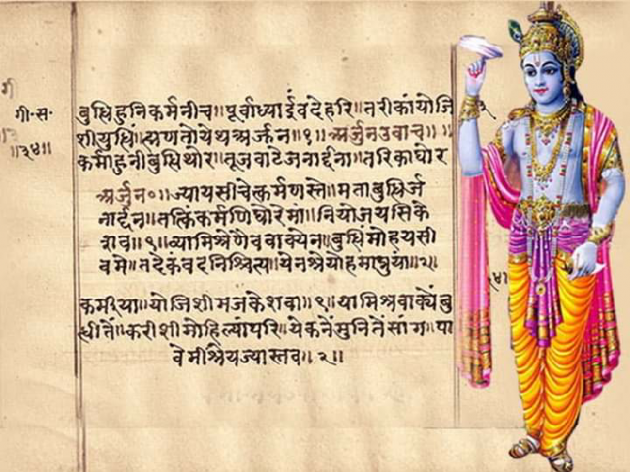 गी॰स॰
॥३४॥
बुद्धिहुनिकर्मनीच॥पूर्वाध्याईवदेहरि॥तरीकांयोजि
शीयुद्धिं॥म्हणतोयेथअर्जुन॥१॥अर्जुनउवाच॥
कर्माहुनीबुद्धिथोर॥तूजवाटेजनार्दना॥तरिकाघोर
अर्जुन॰॥ज्यायसीचेत्कर्मणस्ते॥मताबुद्धिर्ज
नार्द्दन॥तत्किंकर्मणिघोरेमां॥नियोजयसिके
शव॥१॥व्यामिश्रेणैववाक्येन॥बुद्धिंमोहयसी
वमे॥तदेकंवदनिश्चित्य॥येनश्रेयोहमाप्नुयां॥२॥
कर्मीया॥योजिशीमजकेशवा॥१॥यामिश्रवाक्येंबु
द्धीतें॥करीशीमोहिल्यापरि॥येकनेंसुनितेंसांग॥पा
वेमीश्रेयज्यास्तव॥२॥